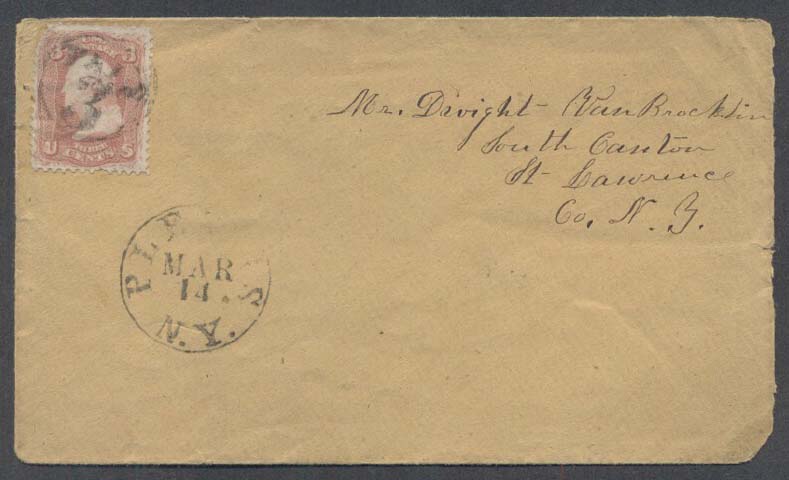 3 3
U S
THREE
CENTS
Mr. Dwight VanBrocklin
South Canton
St Lawrence
Co. N. Y.
MAR
14
N.Y.